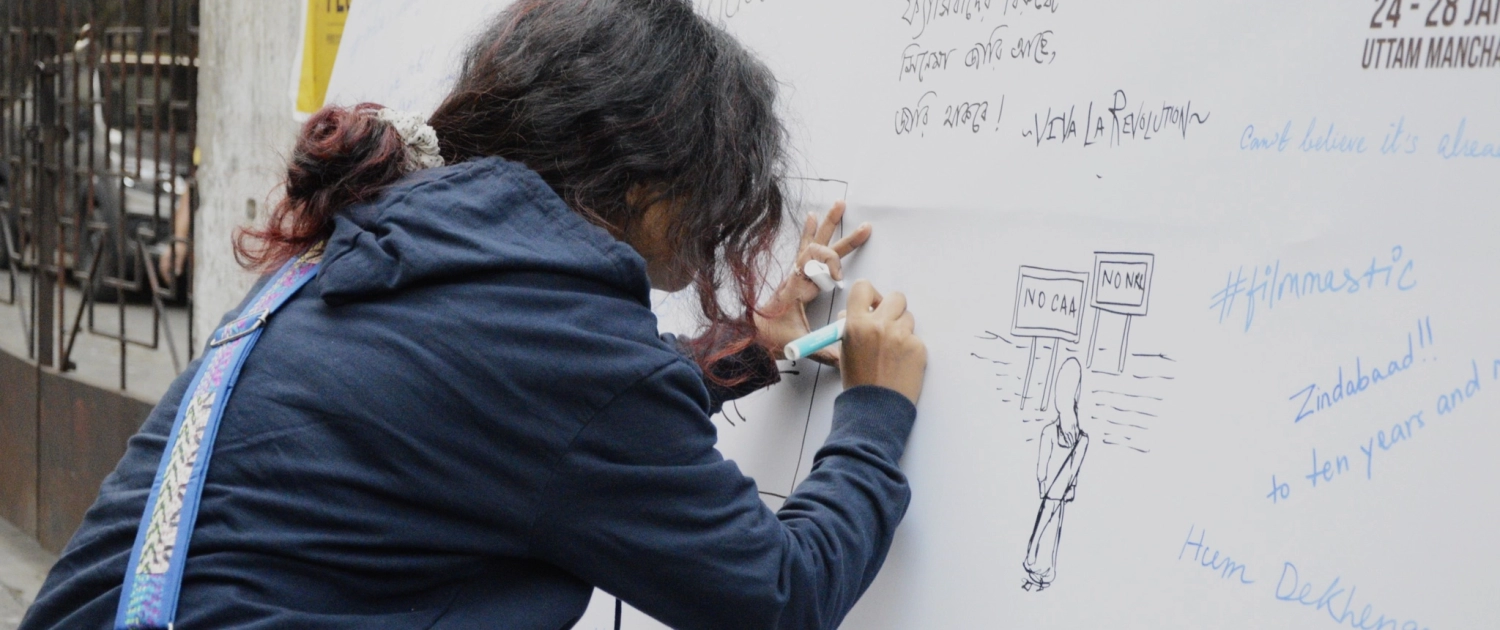 24 - 28 JAN
UTTAM MANCHA
সিনেমা জারি আছে,
জারি থাকবে!
~VIVA LA REVOLUTION~
Can't believe it's alrea
NO CAA
NO NRC
#filmmastic
Zindabaad!!
to ten years and
Hum Dekheng